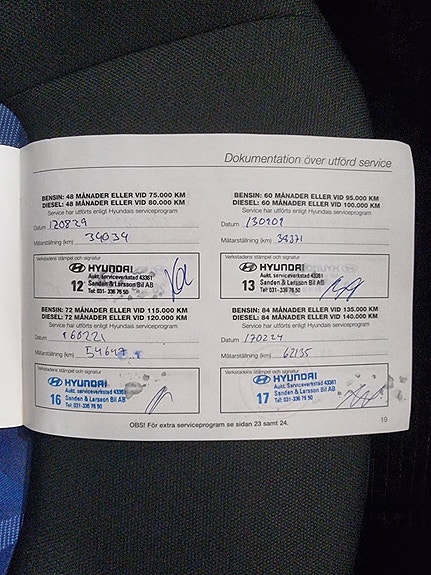 Dokumentation över utförd service
BENSIN: 48 MÅNADER ELLER VID 75.000 KM
DIESEL: 48 MÅNADER ELLER VID 80.000 KM
Service har utförts enligt Hyundais serviceprogram
Datum 120829
Mätarställning (km) 34034
Verkstadens stämpel och signatur
HYUNDAI
Aukt. serviceverkstad 43361
12 Sanden & Larsson Bil AB
Tel: 031-336 76 50
BENSIN: 60 MÅNADER ELLER VID 95.000 KM
DIESEL: 60 MÅNADER ELLER VID 100.000 KM
Service har utförts enligt Hyundais serviceprogram
Datum 130201
Mätarställning (km)
Verkstadens stämpel och signatur
HYUNDAI
Aukt. serviceverkstad 43361
13 Sanden & Larsson Bil AB
Tel: 031-336 76 50
BENSIN: 72 MÅNADER ELLER VID 115.000 KM
DIESEL: 72 MÅNADER ELLER VID 120.000 KM
Service har utförts enligt Hyundais serviceprogram
Datum 160221
Mätarställning (km)
Verkstadens stämpel och signatur
HYUNDAI
Aukt. Serviceverkstad 43361
16 Sanden & Larsson Bil AB
Tel: 031-336 76 50
BENSIN: 84 MÅNADER ELLER VID 135.000 KM
DIESEL: 84 MÅNADER ELLER VID 140.000 KM
Service har utförts enligt Hyundais serviceprogram
Datum 170224
Mätarställning (km) 62135
Verkstadens stämpel och signatur
HYUNDAI
Aukt. Serviceverkstad 43361
17 Sanden & Larsson Bil AB
Tel: 031-336 76 50
OBS! För extra serviceprogram se sidan 23 samt 24.
19